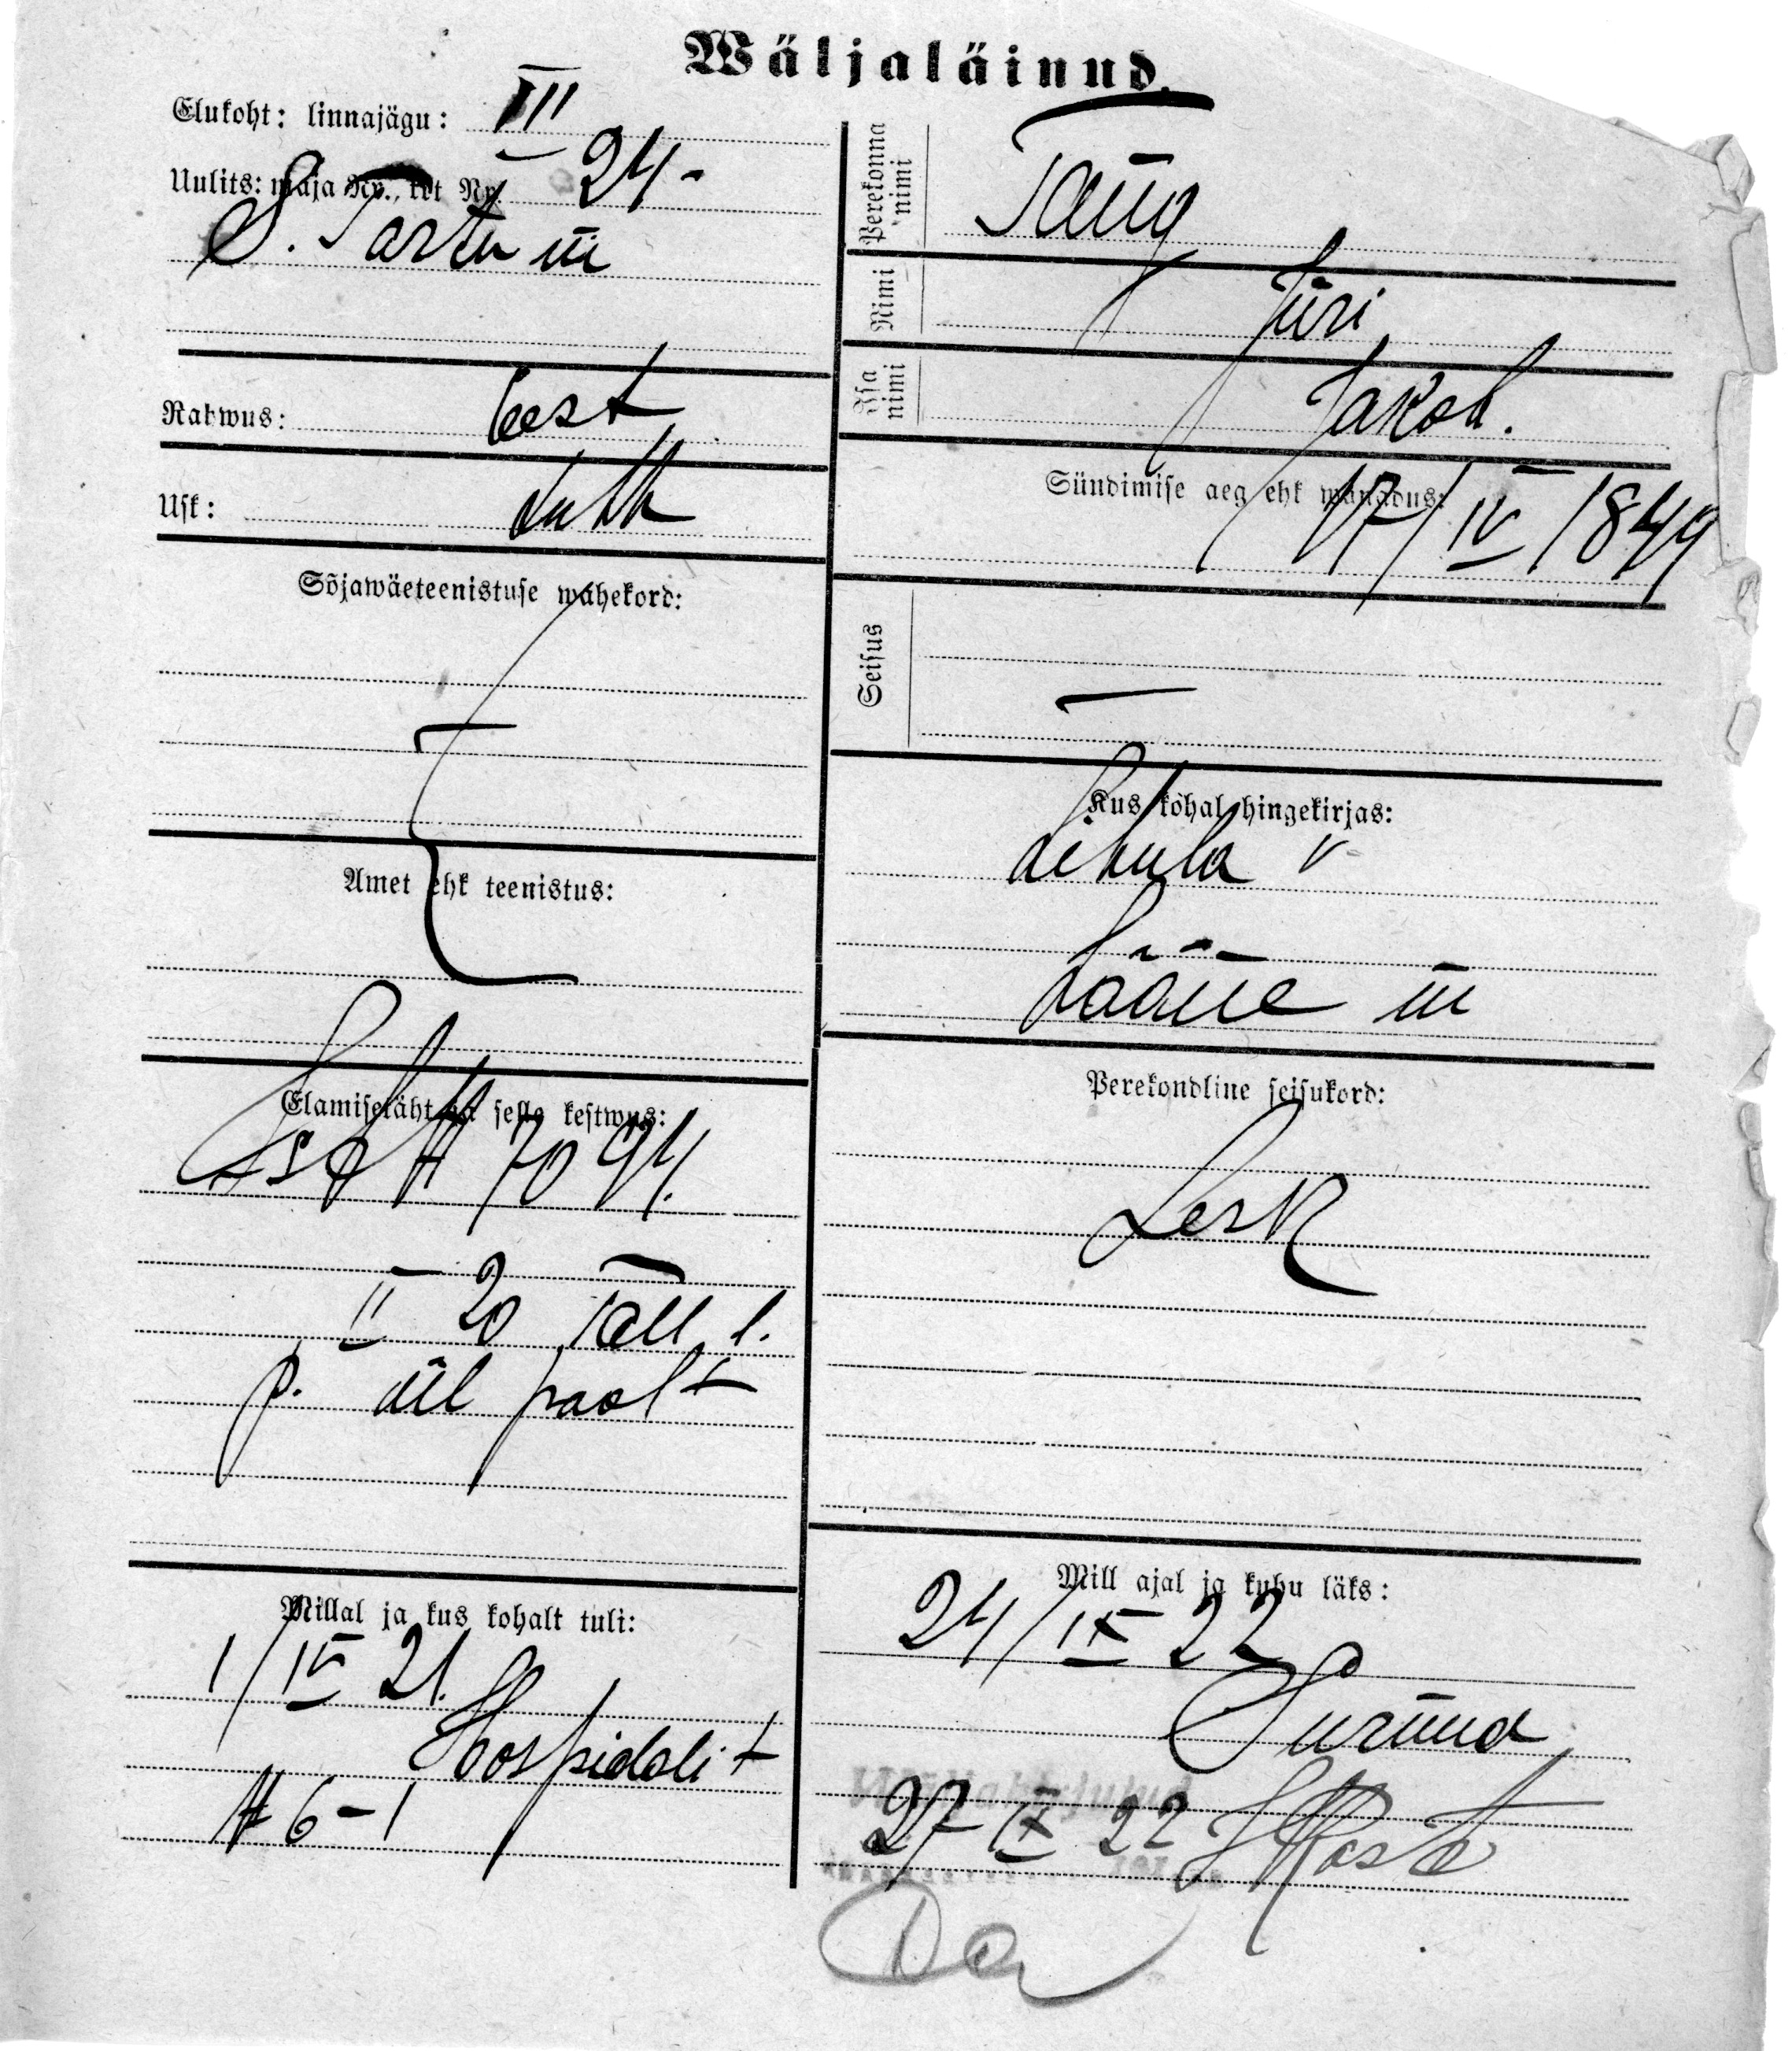 Wäljaläinud.
Elukoht: linnajägu: III
Uulits: maja Nr., krt Nr. 24-
S. Tartu m
Rahwus: Eest
Usk: Luth
Sõjawäeteenistuse wahekord:
—
Amet ehk teenistus:
Elamiseläht ja selle kestwus:
№ 7094.
II 20 Tall l.
p. ül poolt
Millal ja kus kohalt tuli:
1/IV 21.
Hospidali t
№ 6-1
Perekonna nimi
Tang
Nimi Jüri
Isa nimi Jakob.
Sündimise aeg ehk wanadus:
17/IV 1849
Seisus —
Kus kohal hingekirjas:
Lihula v
Lääne m
Perekondline seisukord:
Lesk
Mill ajal ja kuhu läks:
24/IX 22
Surnud
27 IX 22